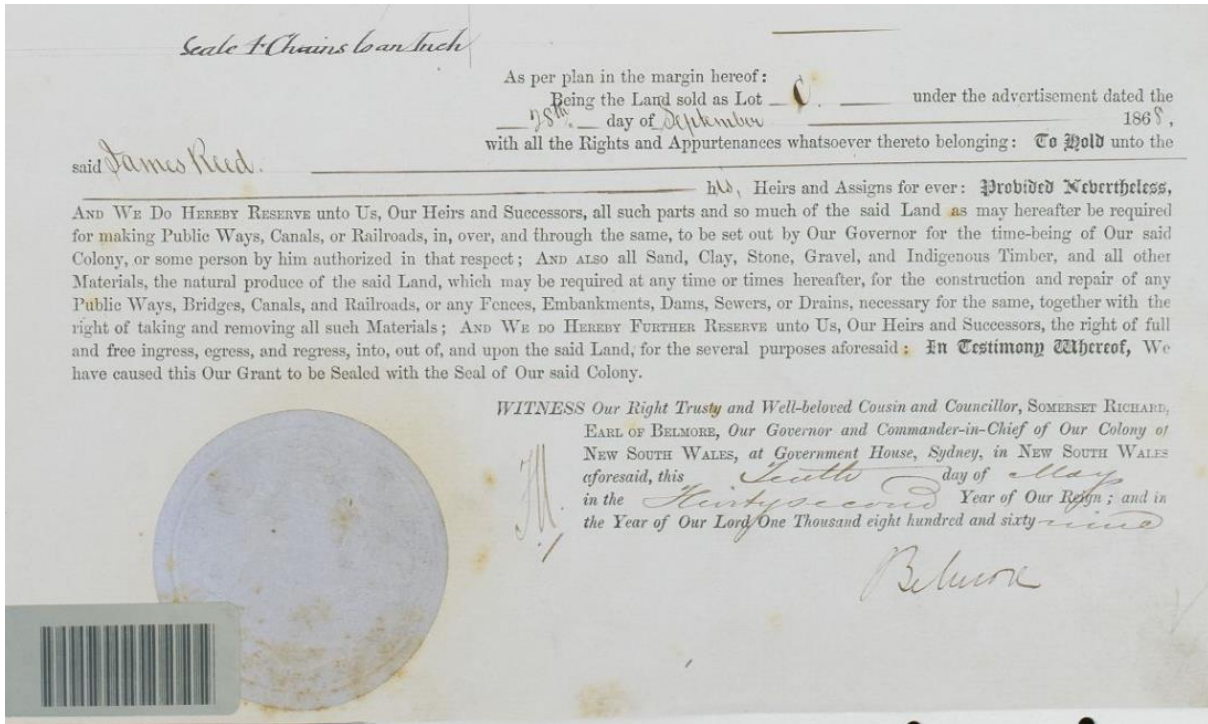 Scale 4 Chains to an Inch
As per plan in the margin hereof:
Being the Land sold as Lot C. under the advertisement dated the
28th. day of September 1868,
with all the Rights and Appurtenances whatsoever thereto belonging: To Hold unto the
said James Reed.
his, Heirs and Assigns for ever: Provided Nevertheless,
AND WE DO HEREBY RESERVE unto Us, Our Heirs and Successors, all such parts and so much of the said Land as may hereafter be required
for making Public Ways, Canals, or Railroads, in, over, and through the same, to be set out by Our Governor for the time-being of Our said
Colony, or some person by him authorized in that respect; AND ALSO all Sand, Clay, Stone, Gravel, and Indigenous Timber, and all other
Materials, the natural produce of the said Land, which may be required at any time or times hereafter, for the construction and repair of any
Public Ways, Bridges, Canals, and Railroads, or any Fences, Embankments, Dams, Sewers, or Drains, necessary for the same, together with the
right of taking and removing all such Materials; AND WE DO HEREBY FURTHER RESERVE unto Us, Our Heirs and Successors, the right of full
and free ingress, egress, and regress, into, out of, and upon the said Land, for the several purposes aforesaid: In Testimony Whereof, We
have caused this Our Grant to be Sealed with the Seal of Our said Colony.
WITNESS Our Right Trusty and Well-beloved Cousin and Councillor, SOMERSET RICHARD,
EARL OF BELMORE, Our Governor and Commander-in-Chief of Our Colony of
NEW SOUTH WALES, at Government House, Sydney, in NEW SOUTH WALES
aforesaid, this Tenth day of May
in the Thirty second Year of Our Reign; and in
the Year of Our Lord One Thousand eight hundred and sixty-nine
Belmore